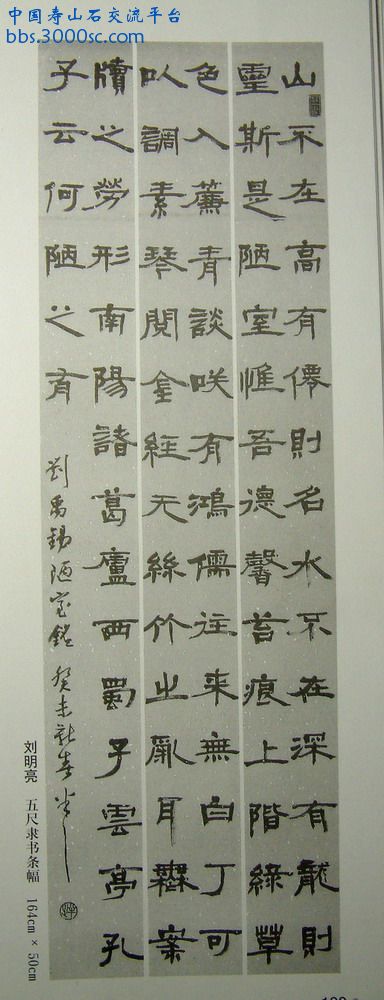 中国寿山石交流平台
bbs.3000sc.com
山不在高有僊則名水不在深有龍則
靈斯是陋室惟吾德馨苔痕上階綠草
色入簾青談咲有鴻儒往來無白丁可
以調素琴閱金經无絲竹之亂耳無案
牘之勞形南陽諸葛廬西蜀子雲亭孔
子云何陋之有
劉禹錫陋室銘 癸未新春
刘明亮 五尺隶书条幅 164cm × 50cm